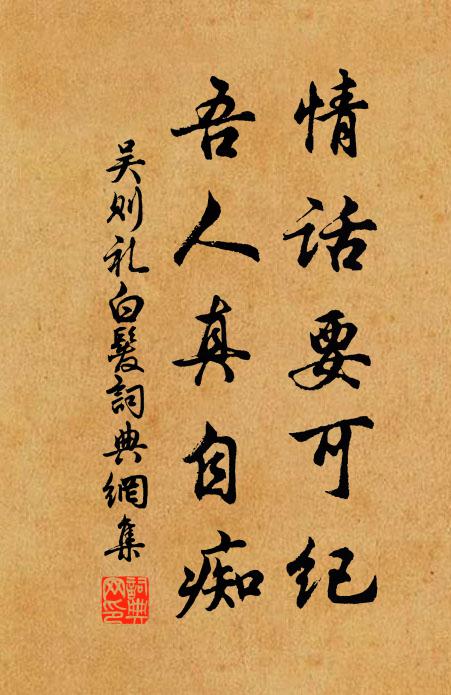 情话要可纪
吾人真自痴
吴则礼白髮词典網集
詞典网印